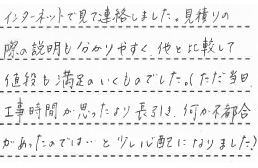 インターネットで見て連絡しました。見積りの
際の説明も分かりやすく、他と比較して
値段も満足のいくものでした。(ただ当日
工事時間が思ったより長引き、何か不都合
があったのでは…と少し心配になりました)